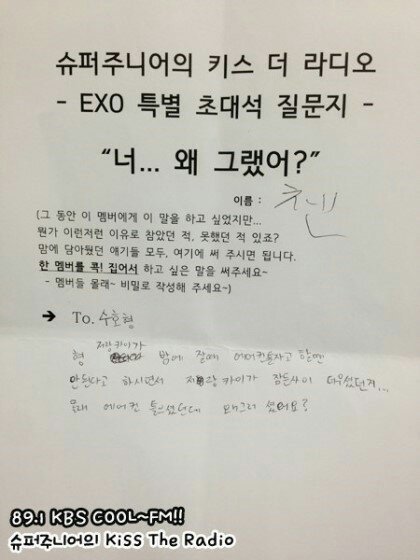 슈퍼주니어의 키스 더 라디오
- EXO 특별 초대석 질문지 -
“너... 왜 그랬어?”
이름 : 첸
(그 동안 이 멤버에게 이 말을 하고 싶었지만...
뭔가 이런저런 이유로 참았던 적, 못했던 적 있죠?
맘에 담아뒀던 얘기들 모두, 여기에 써 주시면 됩니다.
한 멤버를 콕! 집어서 하고 싶은 말을 써주세요~
- 멤버들 몰래~ 비밀로 작성해 주세요~)
➔ To. 수호형
저랑카이가
형 밤에 잘때 에어컨틀자고 할땐
안된다고 하시면서 저랑 카이가 잠든사이 더우셨던지...
몰래 에어컨 틀으셨던데 왜그러셨어요?
89.1 KBS COOL~FM!!
슈퍼주니어의 Kiss The Radio